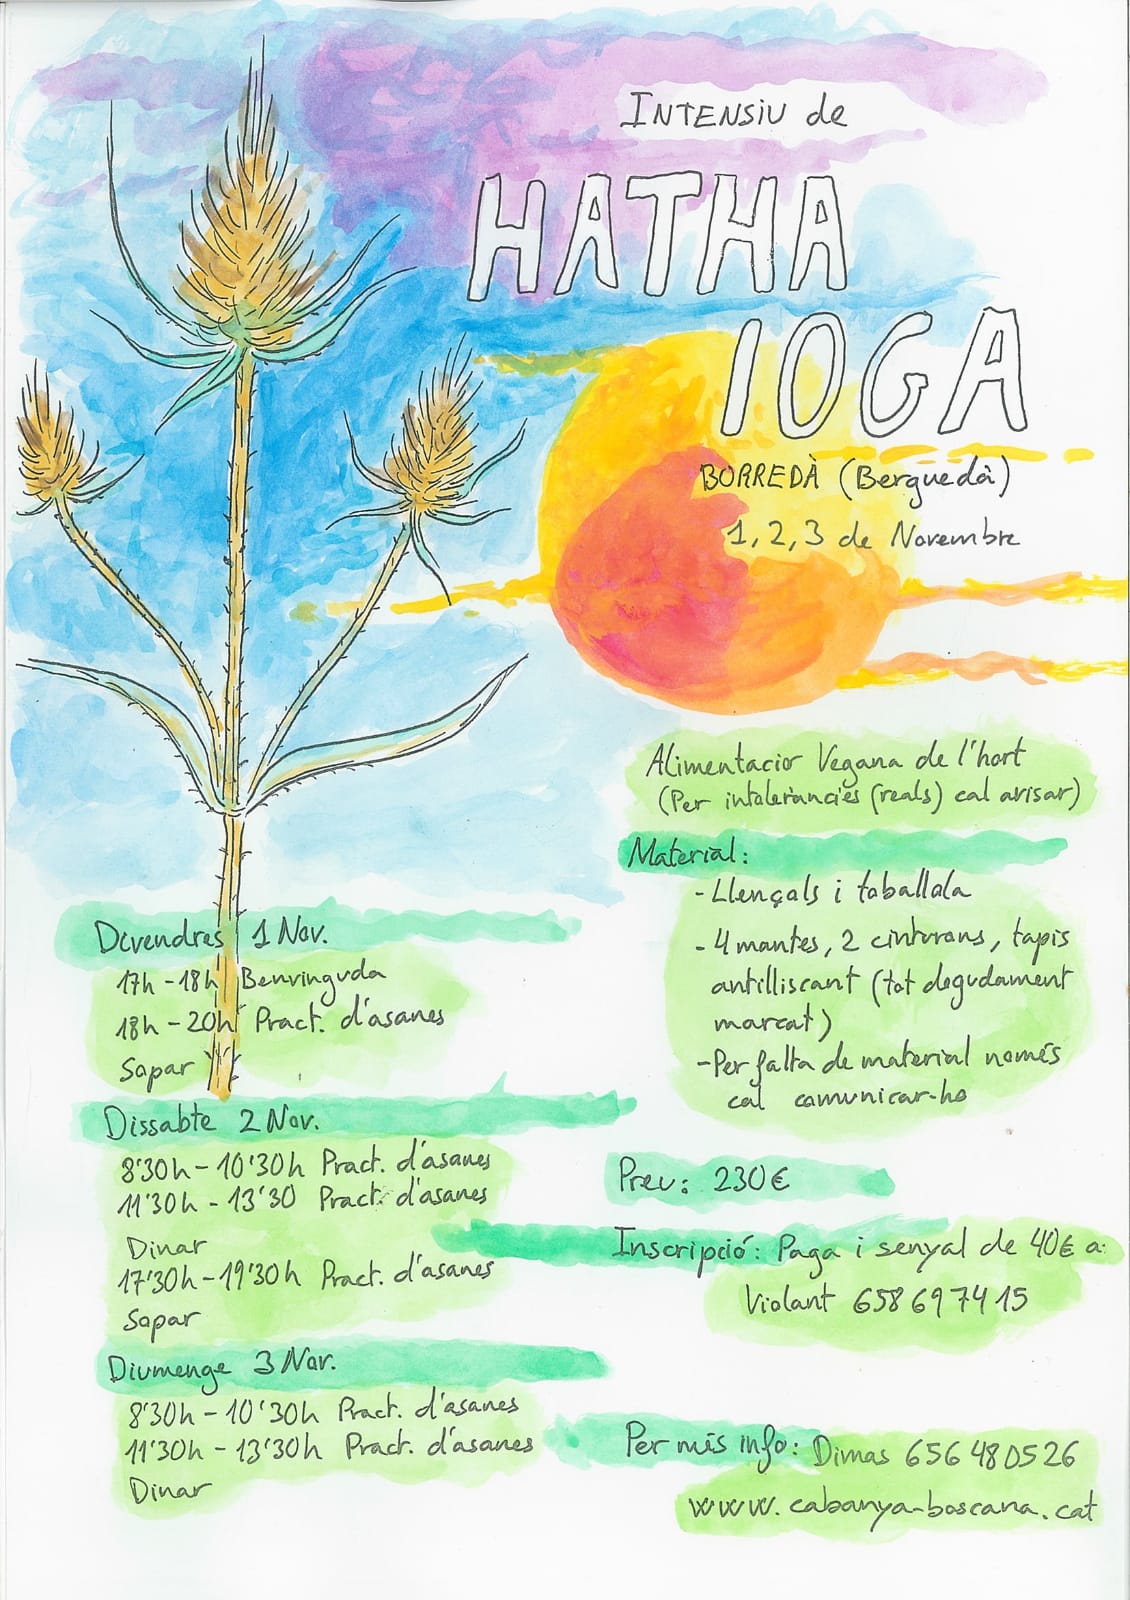 INTENSIU de
HATHA
IOGA
BORREDÀ (Berguedà)
1, 2, 3 de Novembre
Alimentacio Vegana de l'hort
(Per intoleràncies (reals) cal avisar)
Material:
- Llençols i tovallola
- 4 mantes, 2 cinturons, tapis
antilliscant (tot degudament
marcat)
- Per falta de material només
cal comunicar-ho
Preu: 230€
Inscripció: Paga i senyal de 40€ a:
Violant 658 69 74 15
Per més info: Dimas 656 48 05 26
www.cabanya-boscana.cat
Divendres 1 Nov.
17h - 18h Benvinguda
18h - 20h Pract. d'asanes
Sopar
Dissabte 2 Nov.
8'30h - 10'30h Pract. d'asanes
11'30h - 13'30 Pract. d'asanes
Dinar
17'30h - 19'30h Pract. d'asanes
Sopar
Diumenge 3 Nov.
8'30h - 10'30h Pract. d'asanes
11'30h - 13'30h Pract. d'asanes
Dinar